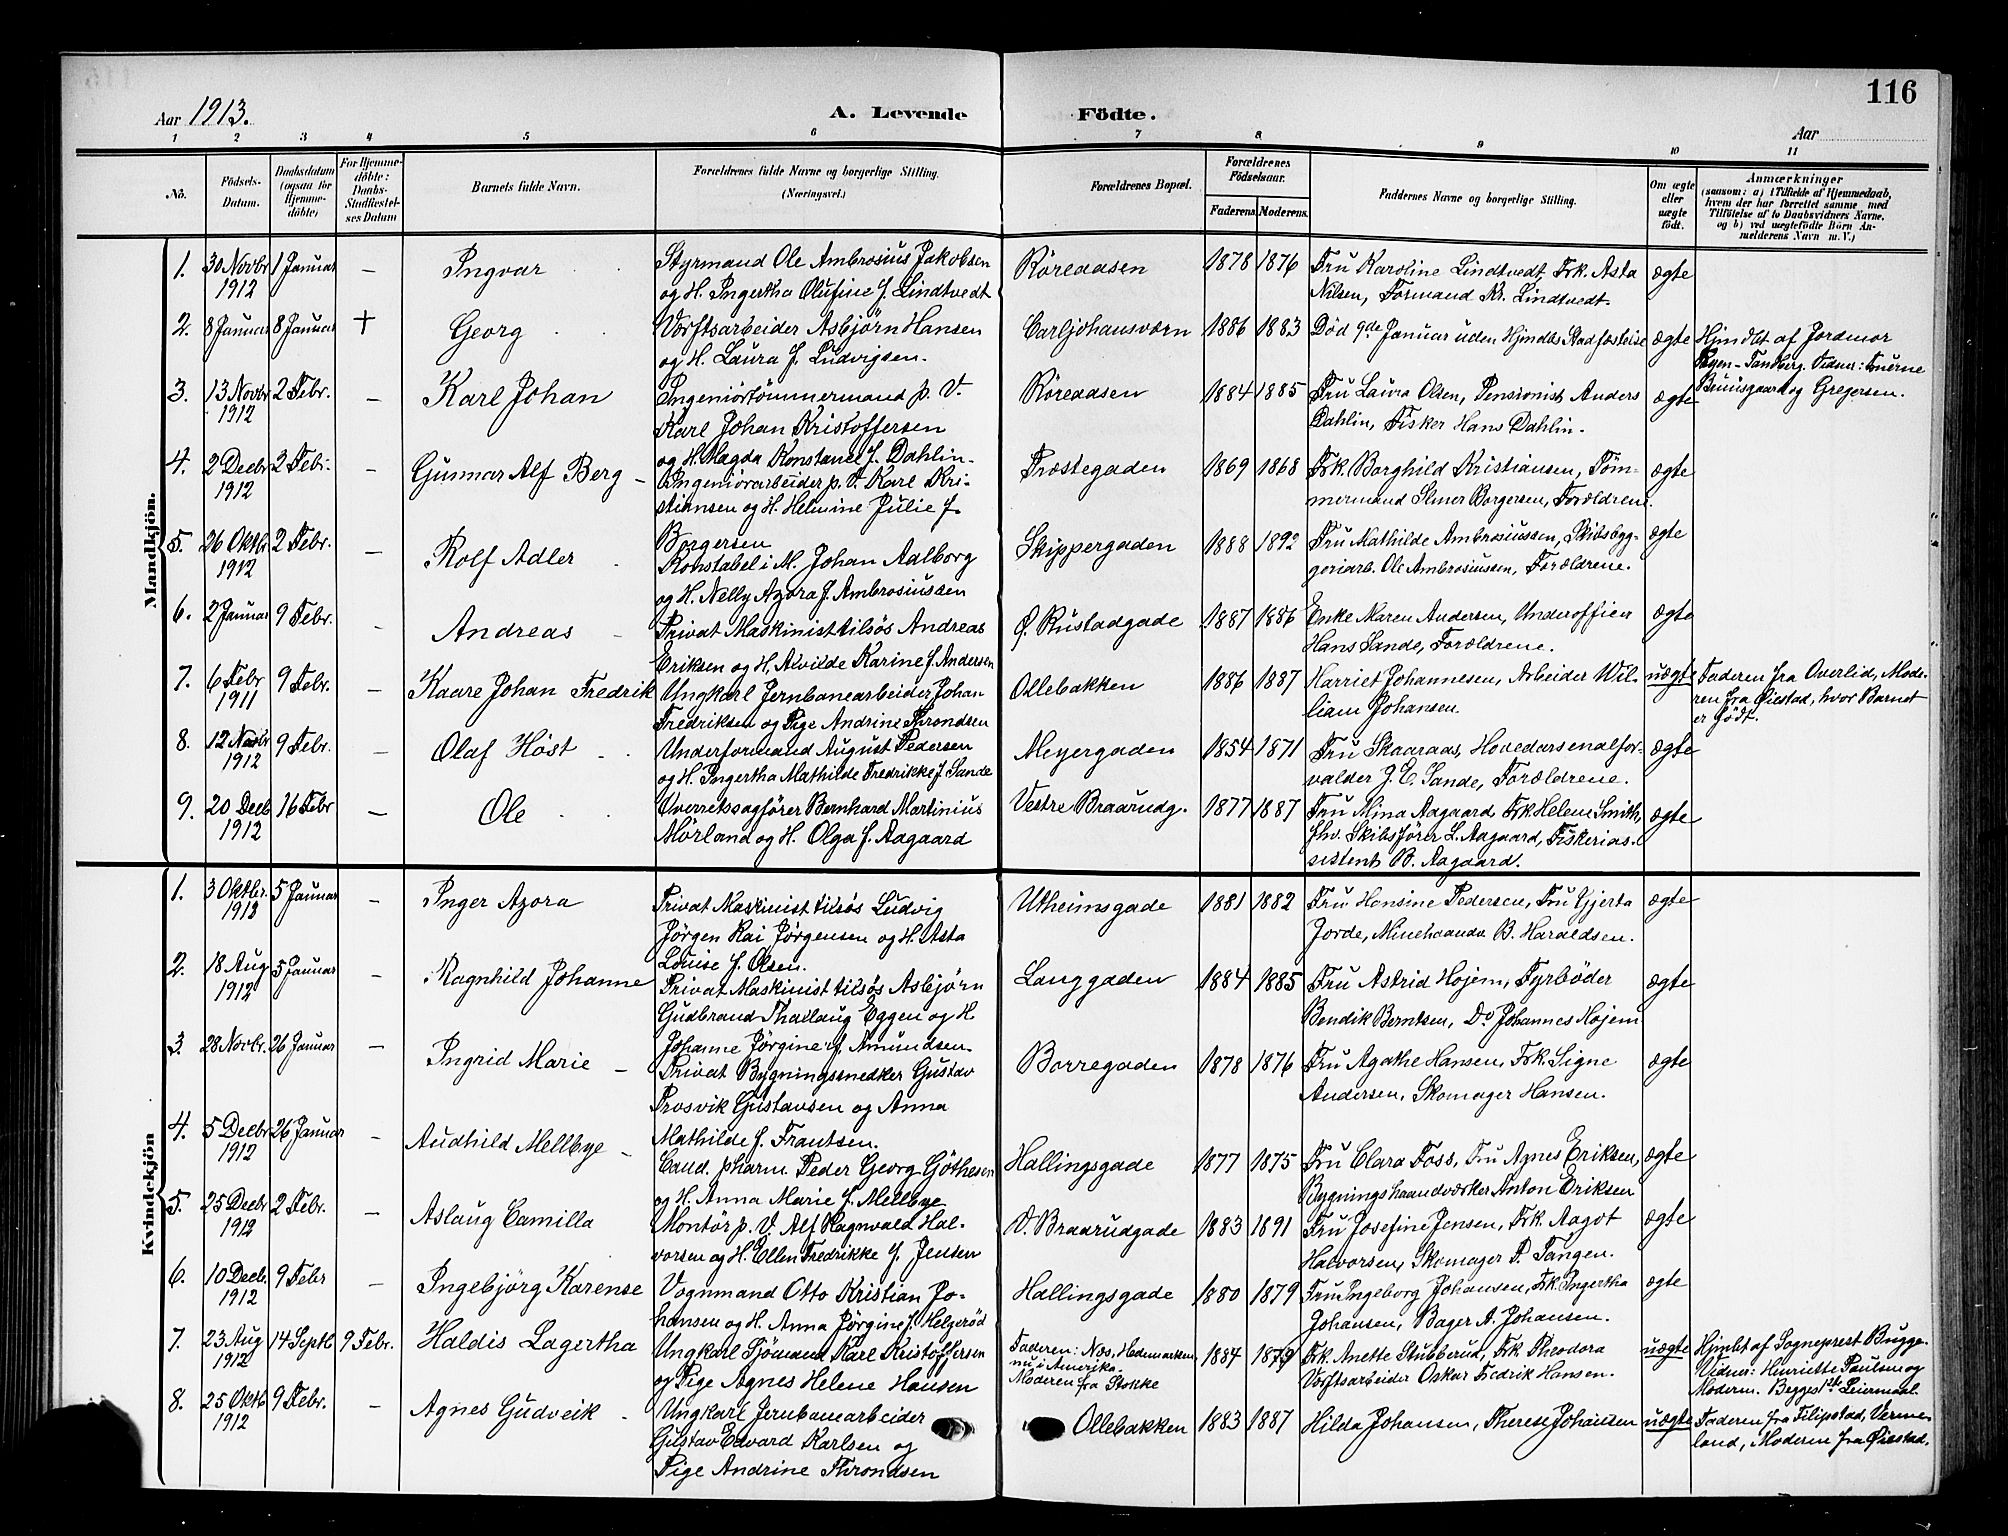 116
Aar 1913.
A. Levende Födte.
Aar
1 2 3 4 5 6 7 8 9 10 11
No.
Födsels-Datum.
Daabsdatum (ogsaa for Hjemme-döbte)
For Hjemme-döbte: Daabs-Stadfæstel-ses Datum
Barnets fulde Navn.
Forældrenes fulde Navne og borgerlige Stilling. (Næringsvei.)
Forældrenes Bopæl.
Forældrenes Födselsaar.
Faderens. Moderens.
Faddernes Navne og borgerlige Stilling.
Om ægte eller uægte födt.
Anmærkninger
(saasom: a) i Tilfælde af Hjemmedaab, hvem der har forrettet samme med Tilföielse af to Daabsvidners Navne, og b) ved uægtefödte Börn An-melderens Navn m. V.)
Mandkjön.
1. 30 Novbr 1912 1 Januar – Ingvar
Styrmand Ole Ambrosius Jakobsen
og H. Ingertha Olufine f. Lindtvedt
Röreaasen 1878 1876
Fru Karoline Lindtvedt, Frk. Asta
Nilsen, Formand Kr. Lindtvedt.
ægte
2. 8 Januar 8 Januar + Georg
Værftsarbeider Asbjörn Hansen
og H. Laura f. Ludvigsen.
Carljohansværn 1886 1883
Död 9de Januar uden Hjmdbs Stadfæstelse
ægte
Hjmdbt af Jordmor
Fandberg. Vidner: Fruerne
Bruusgaard og Gregersen.
3. 13 Novbr 1912 2 Febr. – Karl Johan
Ingeniörtömmermand p. V.
Karl Johan Kristoffersen
og H. Magda Konstance f. Dahlin.
Röreaasen 1884 1885
Fru Laura Olsen, Pensionist Anders
Dahlin, Fisker Hans Dahlin.
ægte
4. 2 Decbr 1912 2 Febr. – Gunnar Alf Berg
Ingeniörarbeider p. V. Karl Kri-
stiansen og H. Helmine Julie f.
Borgersen
Præstegaden 1869 1868
Frk. Borghild Kristiansen, Töm-
mermand Elmer Borgersen, Forældrene.
ægte
5. 26 Oktbr. 1912 2 Febr. – Rolf Adler
Konstabel i M. Johan Aalborg
og H. Nelly Azora f. Ambrosiussen
Skippergaden 1888 1892
Fru Mathilde Ambrosiussen, Skibsbyg-
geriarb. Ole Ambrosiussen, Forældrene.
ægte
6. 2 Januar 9 Febr. – Andreas
Privat Maskinist tilsös Andreas
Eriksen og H. Alvilde Karine f. Andersen
Ø. Rustadgade 1887 1886
Enke Maren Andersen, Underofficer
Hans Sande, Forældrene.
ægte
7. 6 Febr 1911 9 Febr. – Kaare Johan Fredrik
Ungkarl Jernbanearbeider Johan
Fredriksen og Pige Andrine Throndsen
Ollebakken 1886 1887
Harriet Johannesen, Arbeider Wil-
liam Johansen.
uægte
Faderen fra Overlid, Mode-
ren fra Øiestad, hvor Barnet
er födt.
8. 12 Novbr 1912 9 Febr. – Olaf Höst
Underformand August Pedersen
og H. Ingertha Mathilde Fredrikke f. Sande
Meyergaden 1854 1871
Fru Skaaraas, Hovedarsenalfor-
valder J. E. Sande, Forældrene.
ægte
9. 20 Decb 1912 16 Febr – Ole
Overretssagförer Bernhard Martinius
Mörland og H. Olga f. Aagaard
Vestre Braarudg. 1877 1887
Fru Mina Aagaard, Frk. Helene Smith,
fhv. Skibsförer L. Aagaard, Fiskerias-
sistent B. Aagaard.
ægte
Kvindekjön
1. 3 Oktbr. 1913 5 Januar – Inger Azora
Privat Maskinist tilsös Ludvig
Jörgen Kai Jörgensen og H. Asta
Louise f. Olsen.
Utheimsgade 1881 1882
Fru Hansine Pedersen, Fru Gjerta
Jorde, Minehaandv. B. Haraldsen.
ægte
2. 18 Aug 1912 5 Januar – Ragnhild Johanne
Privat Maskinist tilsös Asbjörn
Gudbrand Eggen og H.
Johanne Jörgine f. Amundsen.
Langgaden 1884 1885
Fru Astrid Hojem, Fyrböder
Bendik Berntsen, Do Johannes Hojem
ægte
3. 28 Novbr. 26 Januar – Ingrid Marie
Privat Bygningssnedker Gustav
Prosvik Gustavsen og Anna
Mathilde f. Frantsen.
Borregaden 1878 1876
Fru Agathe Hansen, Frk. Signe
Andersen, Skomager Hansen.
ægte
4. 5 Decbr 1912 26 Januar – Audhild Mellbye
Cand. pharm. Peder Georg Göthesen
og H. Anna Marie f. Mellbye
Hallingsgade 1877 1875
Fru Clara Foss, Fru Agnes Eriksen,
Bygningshaandværker Anton Eriksen
ægte
5. 25 Decbr 1912 2 Febr. – Aslaug Camilla
Montör p. V. Alf Ragnvald Hal-
vorsen og H. Ellen Fredrikke f. Jensen
V. Braarudgade 1883 1891
Fru Josefine Jensen, Frk. Aagot
Halvorsen, Skomager P. Tangen.
ægte
6. 10 Decb. 1912 9 Febr – Ingebjörg Karense
Vognmand Otto Kristian Jo-
hansen og H. Anna Jörgine f. Helgeröd
Hallingsgade 1880 1879
Fru Ingeborg Johansen, Frk. Ingertha
Johansen, Bager A. Johansen.
ægte
7. 23 Aug 1912 14 Septb 9 Febr. Haldis Lagertha
Ungkarl Sjömand Karl Kristoffersen
og Pige Agnes Helene Hansen
Faderen: Næs, Hedemarken
nu i Amerika.
Moderen fra Stokke
1884 1879
Frk. Anette Stubberud, Frk Theodora
Værftsarbeider Oskar Fredrik Hansen.
uægte
Hjmbt af Sogneprest Bugge.
Vidner: Henriette Paulsen og
Modern. Begges 1ste Leiermaal.
8. 25 Oktb 1912 9 Febr. – Agnes Gudveik
Ungkarl Jernbanearbeider
Gustav Edvard Karlsen og
Pige Andrine Throndsen
Ollebakken 1883 1887
Hilda Johansen, Therese Johansen
uægte
Faderen fra Filipstad, Verme-
land, Moderen fra Øiestad.